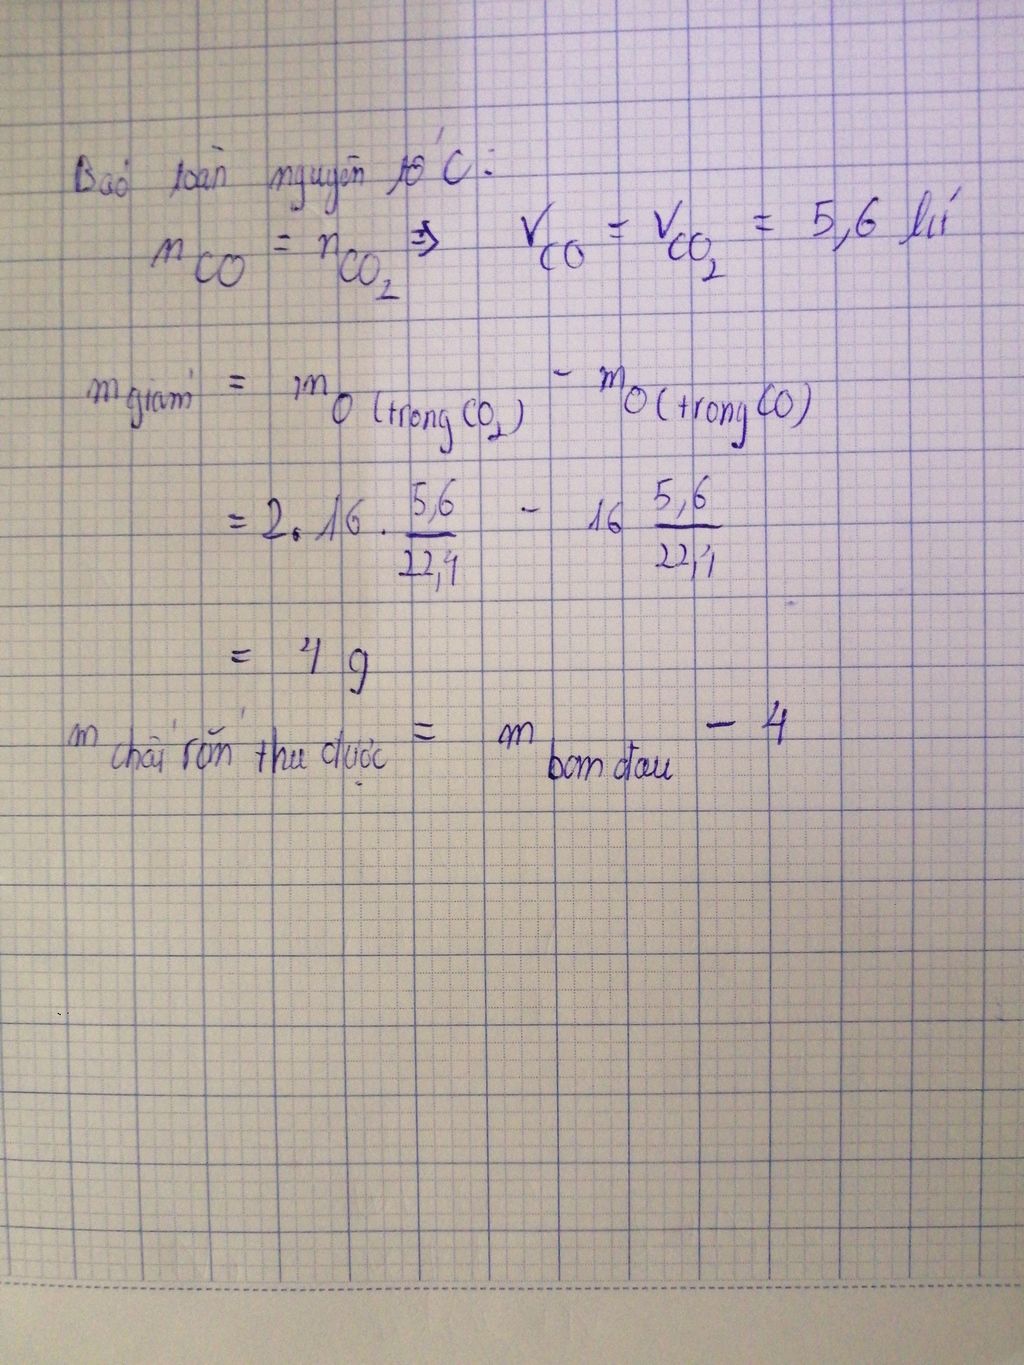 Bảo toàn nguyên tố C:
n CO = n CO2 => V CO = V CO2 = 5,6 lít
m giảm = m O (trong CO2) - m O (trong CO)
= 2. 16 . 5,6/22,4 - 16 5,6/22,4
= 4 g
m chất rắn thu được = m ban đầu - 4